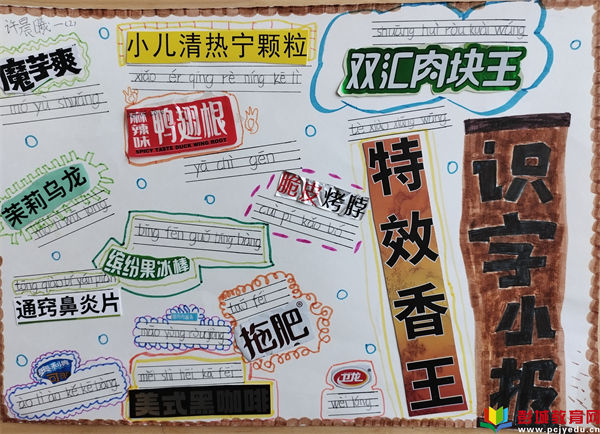 许晨曦一(2)
魔芋爽
mó yù shuǎng
小儿清热宁颗粒
xiǎo ér qīng rè níng kē lì
shuāng huì ròu kuài wáng
双汇肉块王
麻辣味
鸭翅根
SPICY TASTE DUCK WING ROOT
yā chì gēn
茉莉乌龙
脆皮烤脖
cuì pí kǎo bó
bīng fēn guǒ bīng bàng
缤纷果冰棒
通窍鼻炎片
tuō féi
拖肥
měi shì hēi kā fēi
美式黑咖啡
卫龙
wèi lóng
特效香王
识字小报
彭城教育网
www.pcjyedu.cn